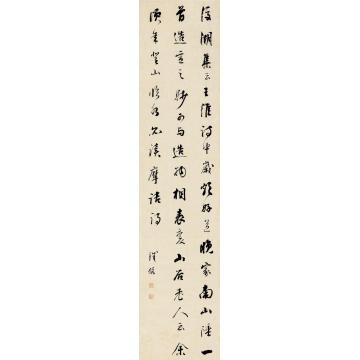 後湖集云王維詩中歲頗好道晚家南山陲一
首造意之妙至與造物相表裏山谷老人云余
頃年登山臨水無不讀摩詰詩